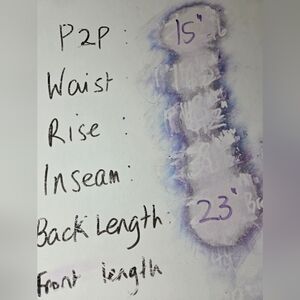 P2P : 15"
Waist :
Rise :
Inseam :
Back Length : 23"
Front length